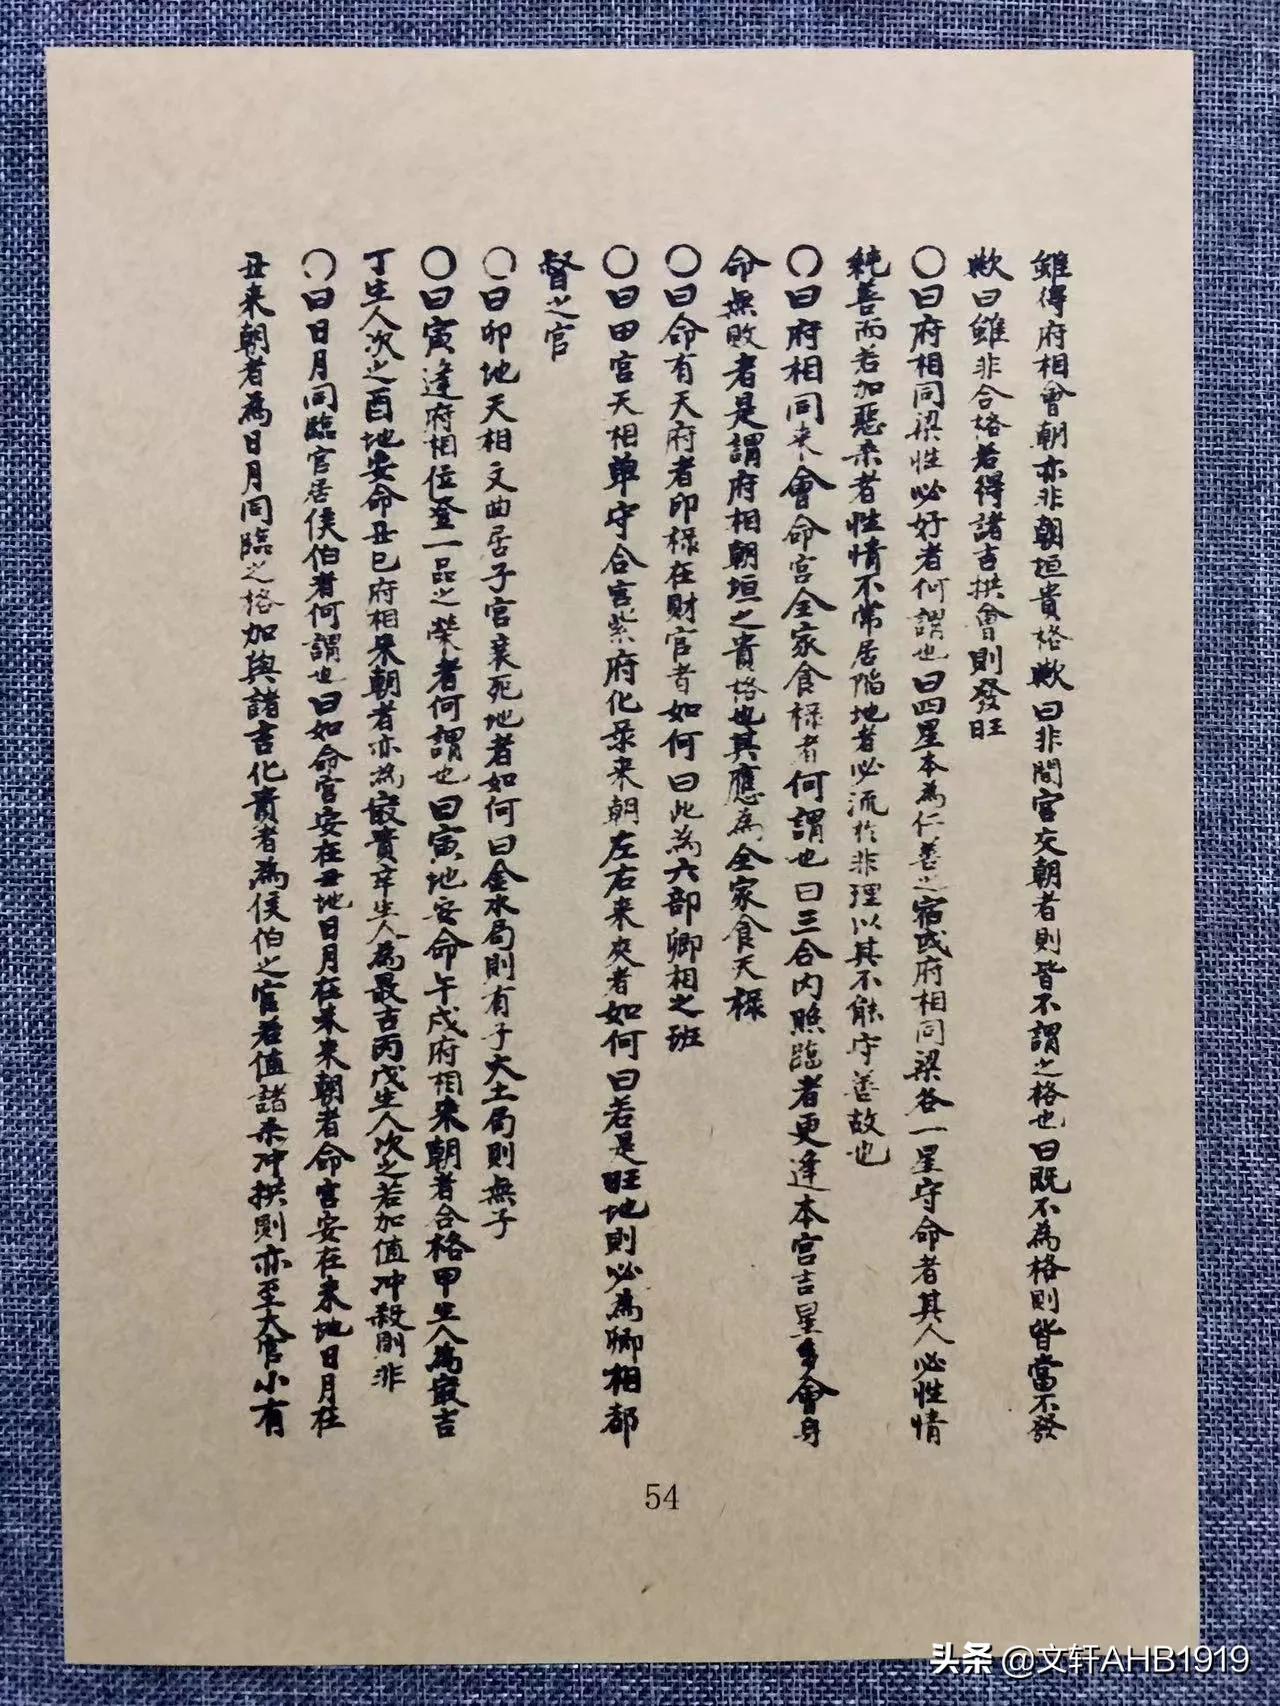 雖得府相會朝亦非朝垣貴格歟曰非間宮交朝者則皆不謂之格也曰既不為格則皆當不發
歟曰雖非合格若得諸吉拱會則發旺
〇曰府相同梁性必好者何謂也曰四星本為仁善之宿或府相同梁各一星守命者其人必性情
純善而若加惡杀者性情不常居陷地者必流於非理以其不能守善故也
〇曰府相同来會命宮全家食禄者何謂也曰三合內照臨者更逢本宮吉星多會身
命無敗者是謂府相朝垣之貴格也其應為全家食天禄
〇曰命有天府者印禄在財官者如何曰此為六部卿相之班
〇曰田宮天相單守合宮紫府化录来朝左右来夾者如何曰若是旺地則必為卿相都
督之官
〇曰卯地天相文曲居子宮衰死地者如何曰金水局則有子火土局則無子
〇曰寅逢府相位登一品之榮者何謂也曰寅地安命午戌府相来朝者合格甲生人為最吉
丁生人次之酉地安命丑巳府相来朝者亦為最貴辛生人為最吉丙戊生人次之若加值冲殺則非
〇曰日月同臨官居侯伯者何謂也曰如命宮安在丑地日月在未来朝者命宮安在未地日月在
丑来朝者為日月同臨之格加與諸吉化貴者為侯伯之官若值諸杀冲拱則亦至大官小有
54
头条 @文轩AHB1919